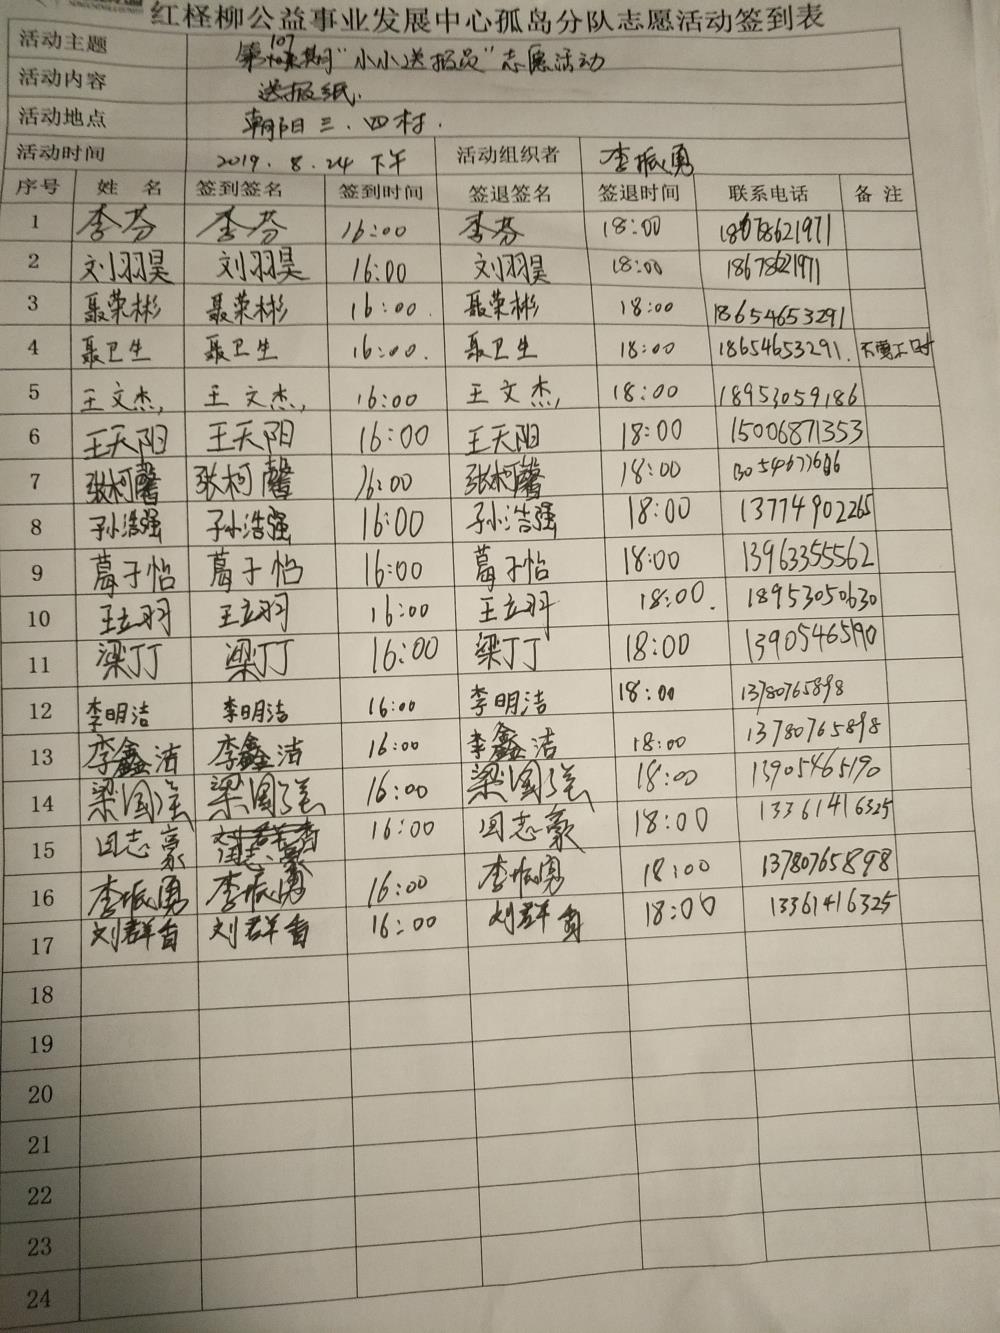 红柽柳公益事业发展中心孤岛分队志愿活动签到表
活动主题 第107期"小小送报员"志愿活动
活动内容 送报纸.
活动地点 朝阳三.四村.
活动时间 2019.8.24下午 活动组织者 李振勇
序号 姓名 签到签名 签到时间 签退签名 签退时间 联系电话 备注
1 李芬 李芬 16:00 李芬 18:00 18678621971
2 刘羽昊 刘羽昊 16:00 刘羽昊 18:00 18678621971
3 聂荣彬 聂荣彬 16:00. 聂荣彬 18:00 18654653291
4 聂卫生 聂卫生 16:00. 聂卫生 18:00 18654653291. 不要工时
5 王文杰, 王文杰, 16:00 王文杰, 18:00 18953059186
6 王天阳 王天阳 16:00 王天阳 18:00 15006871353
7 张柯馨 张柯馨 16:00 张柯馨 18:00
8 孙浩强 孙浩强 16:00 孙浩强 18:00 13774902265
9 葛于怡 葛于怡 16:00 葛于怡 18:00 13963355562
10 王立羽 王立羽 16:00 王立羽 18:00. 18953050630
11 梁丁丁 梁丁丁 16:00 梁丁丁 18:00 13905465190
12 李明洁 李明洁 16:00 李明洁 18:00 13780765898
13 李鑫洁 李鑫洁 16:00 李鑫洁 18:00 13780765898
14 梁国强 梁国强 16:00 梁国强 18:00 13905465190
15 田志豪 田志豪 16:00 田志豪 18:00 13361416325
16 李振勇 李振勇 16:00 李振勇 18:00 13780765898
17 刘群香 刘群香 16:00 刘群香 18:00 13361416325
18
19
20
21
22
23
24